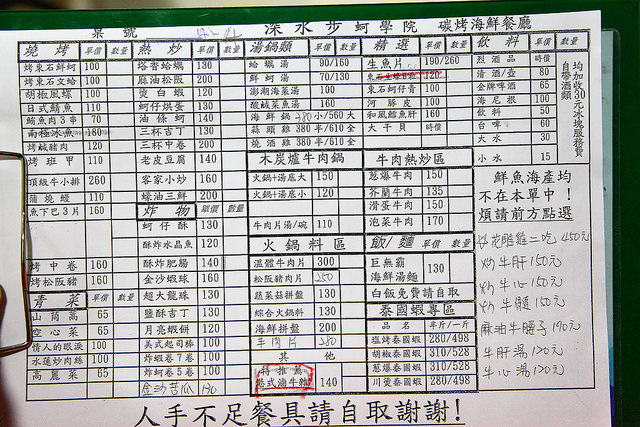 桌 號 深 水 步 蚵學院 碳烤海鮮餐廳
燒 烤 單價 數量
烤東石鮮蚵 100
烤東石文蛤 100
胡椒風螺 100
日式鯖魚 110
鯖魚肉3串 70
南極冰魚 180
烤鹹豬肉 120
烤班甲 110
頂級牛小排 260
蒲燒鰻 110
魚下巴3片 160
烤中卷 160
烤松阪豬 160
青 菜 單價 數量
山茼蒿 65
空心菜 65
情人的眼淚 100
水蓮炒肉絲 100
高麗菜 65
熱 炒 單價 數量
塔香蛤蠣 130
麻油松阪 200
燙白蝦 120
蚵仔烘蛋 130
油條蚵 140
三杯杏丁 130
三杯中卷 200
老皮豆腐 140
客家小炒 160
蠔油三鮮 200
炸 物 單價 數量
蚵仔酥 130
酥炸水晶魚 120
酥炸肥腸 140
金沙蝦球 160
超大龍珠 130
鹽酥杏丁 130
月亮蝦餅 120
美式起司棒 100
炸蝦卷7卷 100
炸蚵卷5卷 100
金沙苦瓜 130
湯鍋類 單價 數量
蛤蠣湯 90/160
鮮蚵湯 70/130
澎湖海菜湯 100
酸鹹菜魚湯 160
海鮮鍋 380小/560大
蒜頭雞 380半/610全
燒酒雞 380半/610全
木炭爐牛肉鍋
火鍋+湯底大 150
火鍋+湯底小 120
牛肉片湯/碗 110
火鍋料區
溫體牛肉片 300
松阪豬肉片 250
蔬菜菇拼盤 130
綜合火鍋料 130
海鮮拼盤 200
羊肉片 250
其 他
特推薦
港式滷牛雜 140
精 選 單價 數量
生魚片 190/260
東石生蠔6顆 120
東石蚵仔青 100
河豚皮 100
和風鱈魚肝 160
大干貝 時價
牛肉熱炒區
蔥爆牛肉 150
芥蘭牛肉 135
滑蛋牛肉 150
泡菜牛肉 170
飯/麵 單價 數量
巨無霸
海鮮湯麵 130
白飯免費請自取
泰國蝦專區
品 名 半斤/一斤
鹽烤泰國蝦 280/498
胡椒泰國蝦 310/528
蔥爆泰國蝦 310/528
川燙泰國蝦 280/498
飲 料 單價 數量
烈酒品 時價
清酒/壺 80
金牌啤酒 65
海尼根 100
飲料 50
台啤 60
大水 30
小水 15
自帶酒類
均加收30元冰塊服務費
鮮魚海產均
不在本單中！
煩請前方點選
花雕雞二吃 450元
炒牛肝 150元
炒牛心 150元
炒牛髓 150元
麻油牛腰子 190元
牛肝湯 120元
牛心湯 120元
人手不足餐具請自取謝謝!